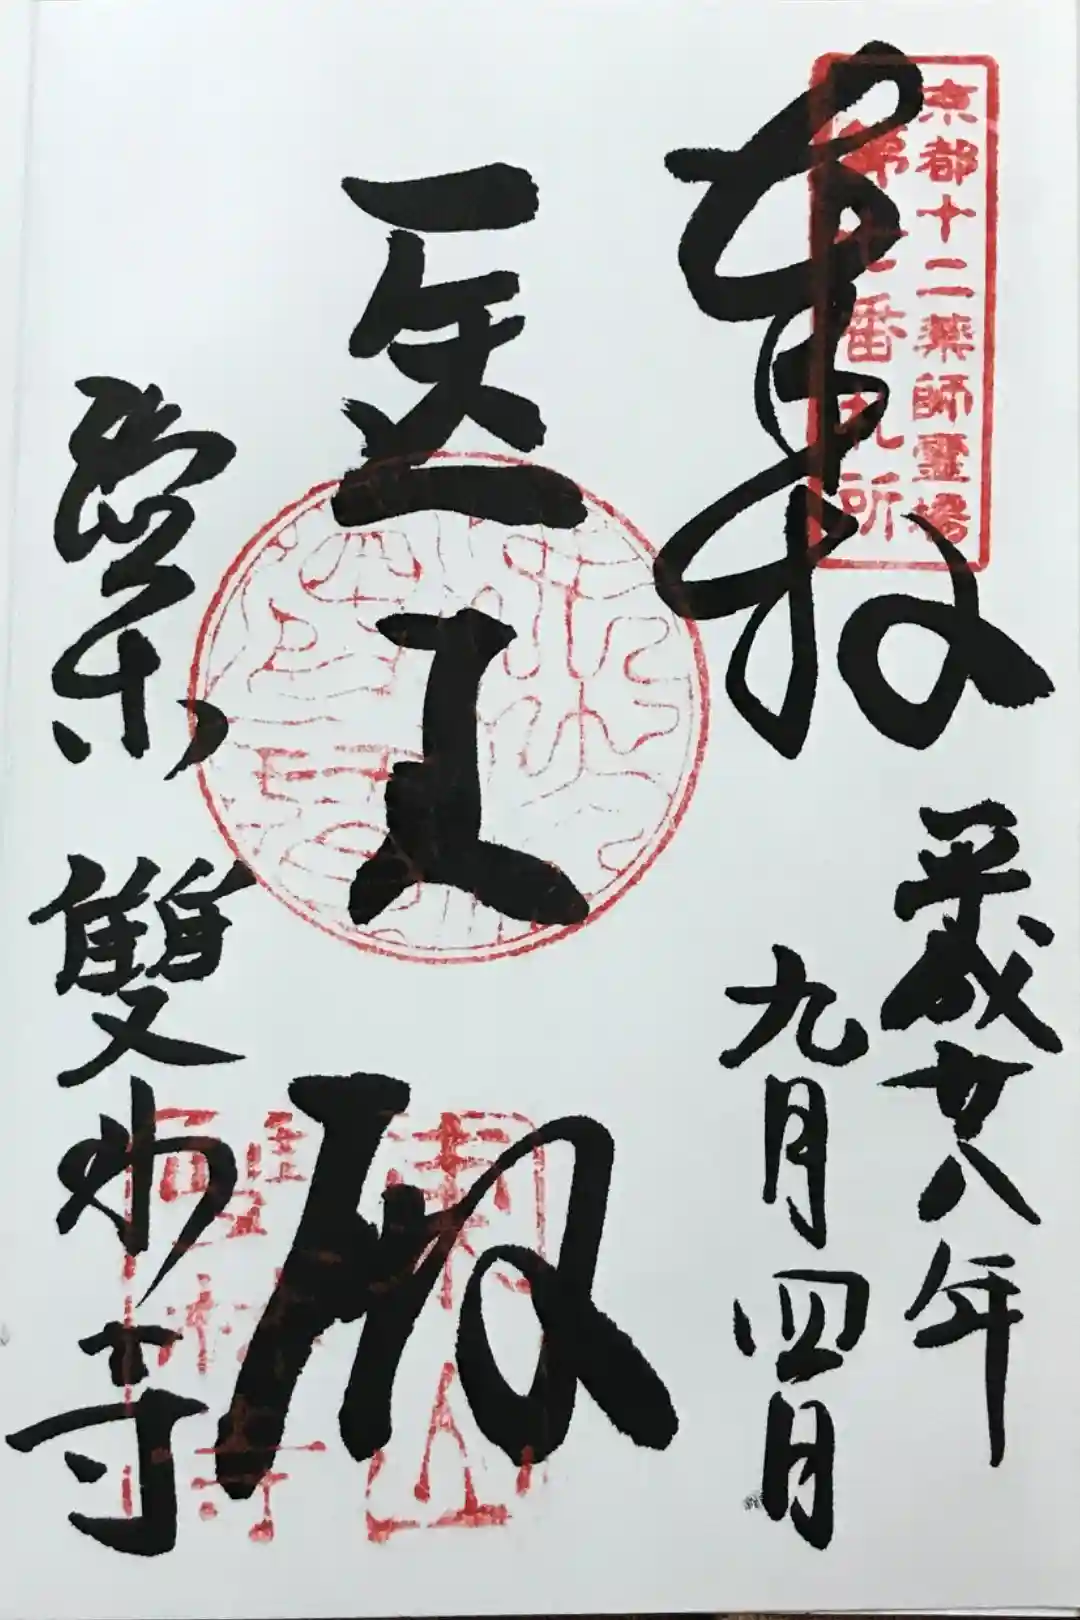 京都十二薬師霊場
第七番札所
奉拝
平成廿八年
九月四日
医王殿
雙林寺
東山
雙林寺